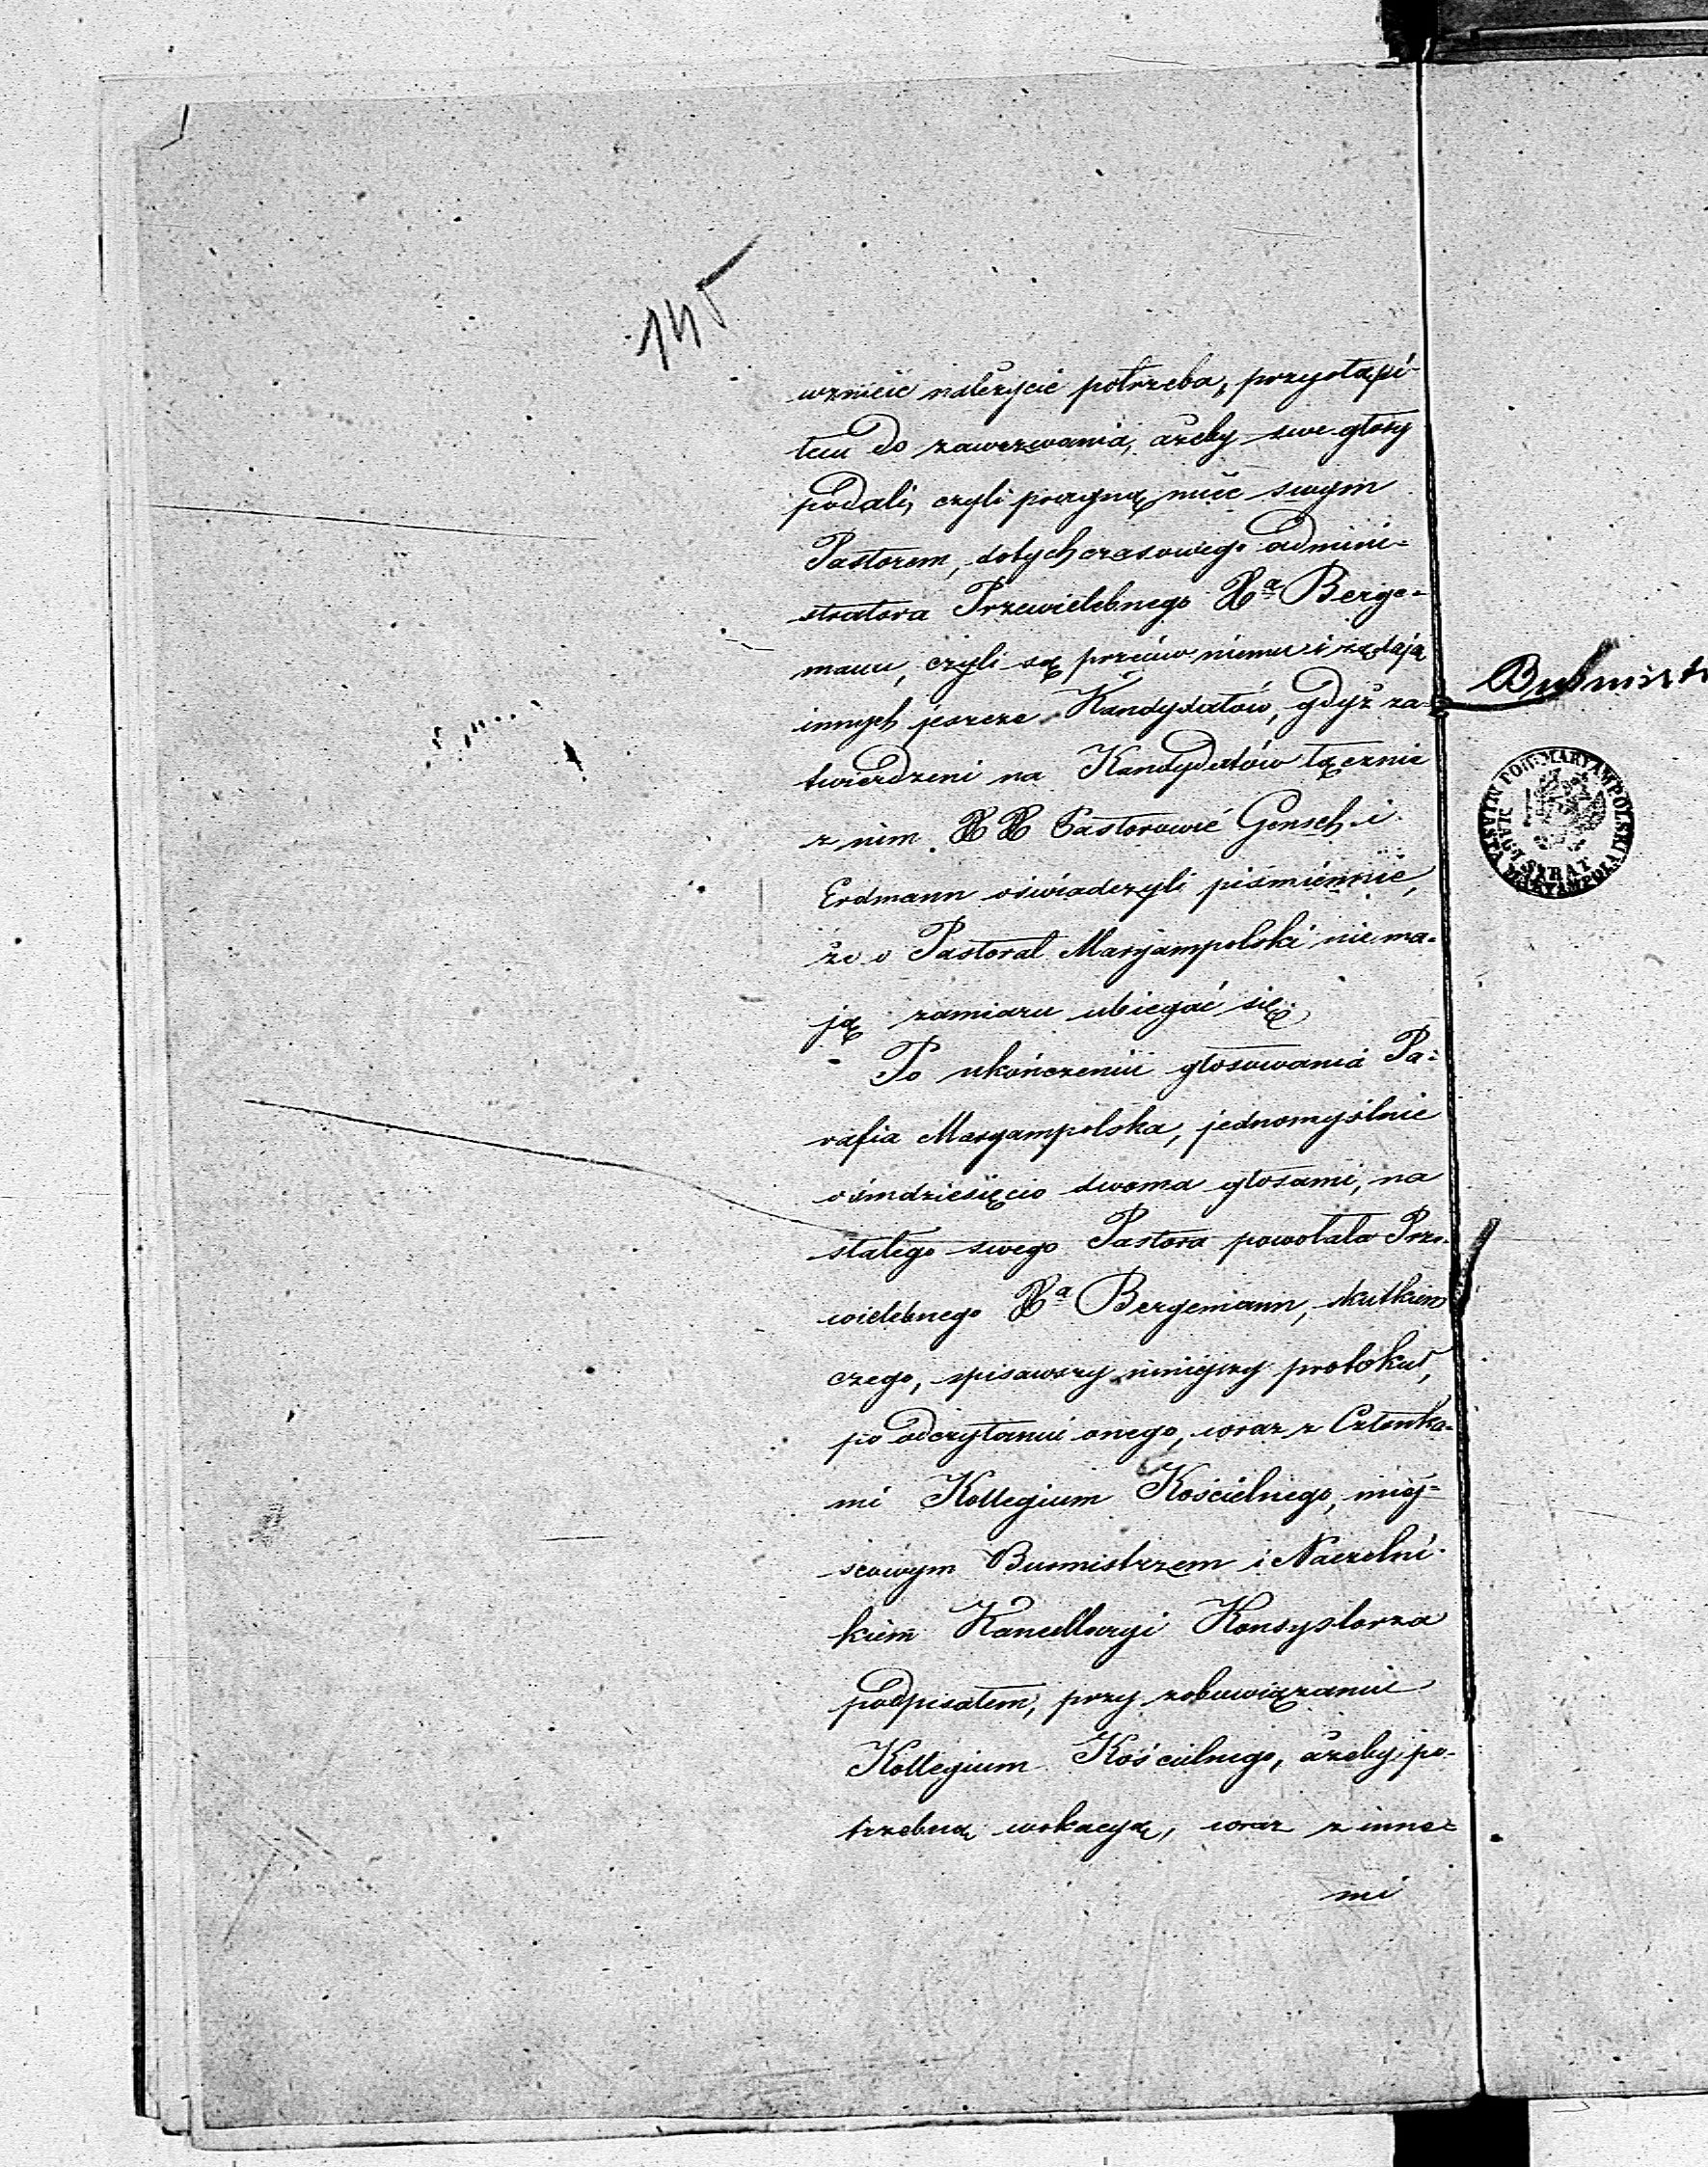 145
wznieść należycie potrzeba, przystąpi-
łem do zawezwania, ażeby swe głosy
podali, czyli pragną mieć swym
Pastorem, dotychczasowego admini=
stratora Przewielebnego Xa Berge=
mann, czyli są przeciw niemu i żądają
innych jeszcze Kandydatów, gdyż za-
twierdzeni na Kandydatów łącznie
z nim XX Pastorowie Gensch i
Erdmann oświadczyli piśmiennie,
że o Pastorat Maryampolski nie ma-
ją zamiaru ubiegać się.
Po ukończeniu głosowania Pa=
rafia Maryampolska, jednomyślnie
ośmdziesięcio dwoma głosami, na
stałego swego Pastora powołała Prze-
wielebnego Xa Bergemann, skutkiem
czego, spisawszy niniejszy protokuł,
po odczytaniu onego, wraz z Członka-
mi Kollegium Kościelnego, miej=
scowym Burmistrzem i Naczelni-
kiem Kancellaryi Konsystorza
podpisałem, przy zobowiązaniu
Kollegium Kościelnego, ażeby po-
trzebną wokacyą, wraz z inne=
mi
Burmistr
MAGISTRAT
MIASTA MARYAMPOLA
POW: MARYAMPOLSKI